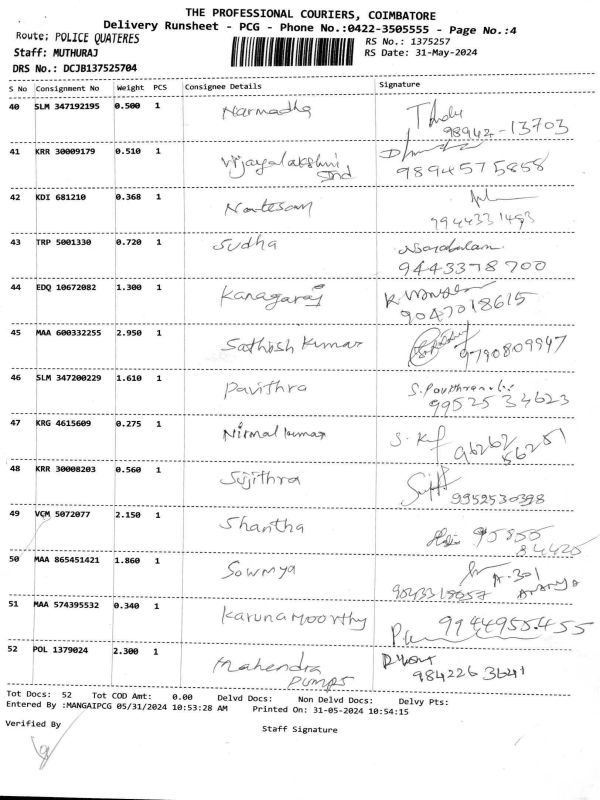 THE PROFESSIONAL COURIERS, COIMBATORE
Delivery Runsheet - PCG - Phone No.:0422-3505555 - Page No.:4
Route; POLICE QUATERES
RS No.: 1375257
Staff: MUTHURAJ
RS Date: 31-May-2024
DRS No.: DCJB137525704
S No Consignment No Weight PCS Consignee Details Signature
40 SLM 347192195 0.500 1 Narmadha
98942-13703
41 KRR 30009179 0.510 1 Vijayalakshmi Ind
9894575858
42 KDI 681210 0.368 1 Natesan
9944331493
43 TRP 5001330 0.720 1 Sudha
9443378700
44 EDQ 10672082 1.300 1 Kanagaraj
9047018615
45 MAA 600332255 2.950 1 Sathish Kumar
9790809947
46 SLM 347200229 1.610 1 Pavithra
99525 34623
47 KRG 4615609 0.275 1 Nirmal kumar
96262 56251
48 KRR 30008203 0.560 1 Sujithra
9952530398
49 VCM 5072077 2.150 1 Shantha
95855
84425
50 MAA 865451421 1.860 1 Sowmya A-301
9043318057
51 MAA 574395532 0.340 1 Karunamoorthy 9944955455
52 POL 1379024 2.300 1 Mahendra
Pumps 984226 3641
Tot Docs: 52 Tot COD Amt: 0.00 Delvd Docs: Non Delvd Docs: Delvy Pts:
Entered By :MANGAIPCG 05/31/2024 10:53:28 AM Printed On: 31-05-2024 10:54:15
Verified By
Staff Signature